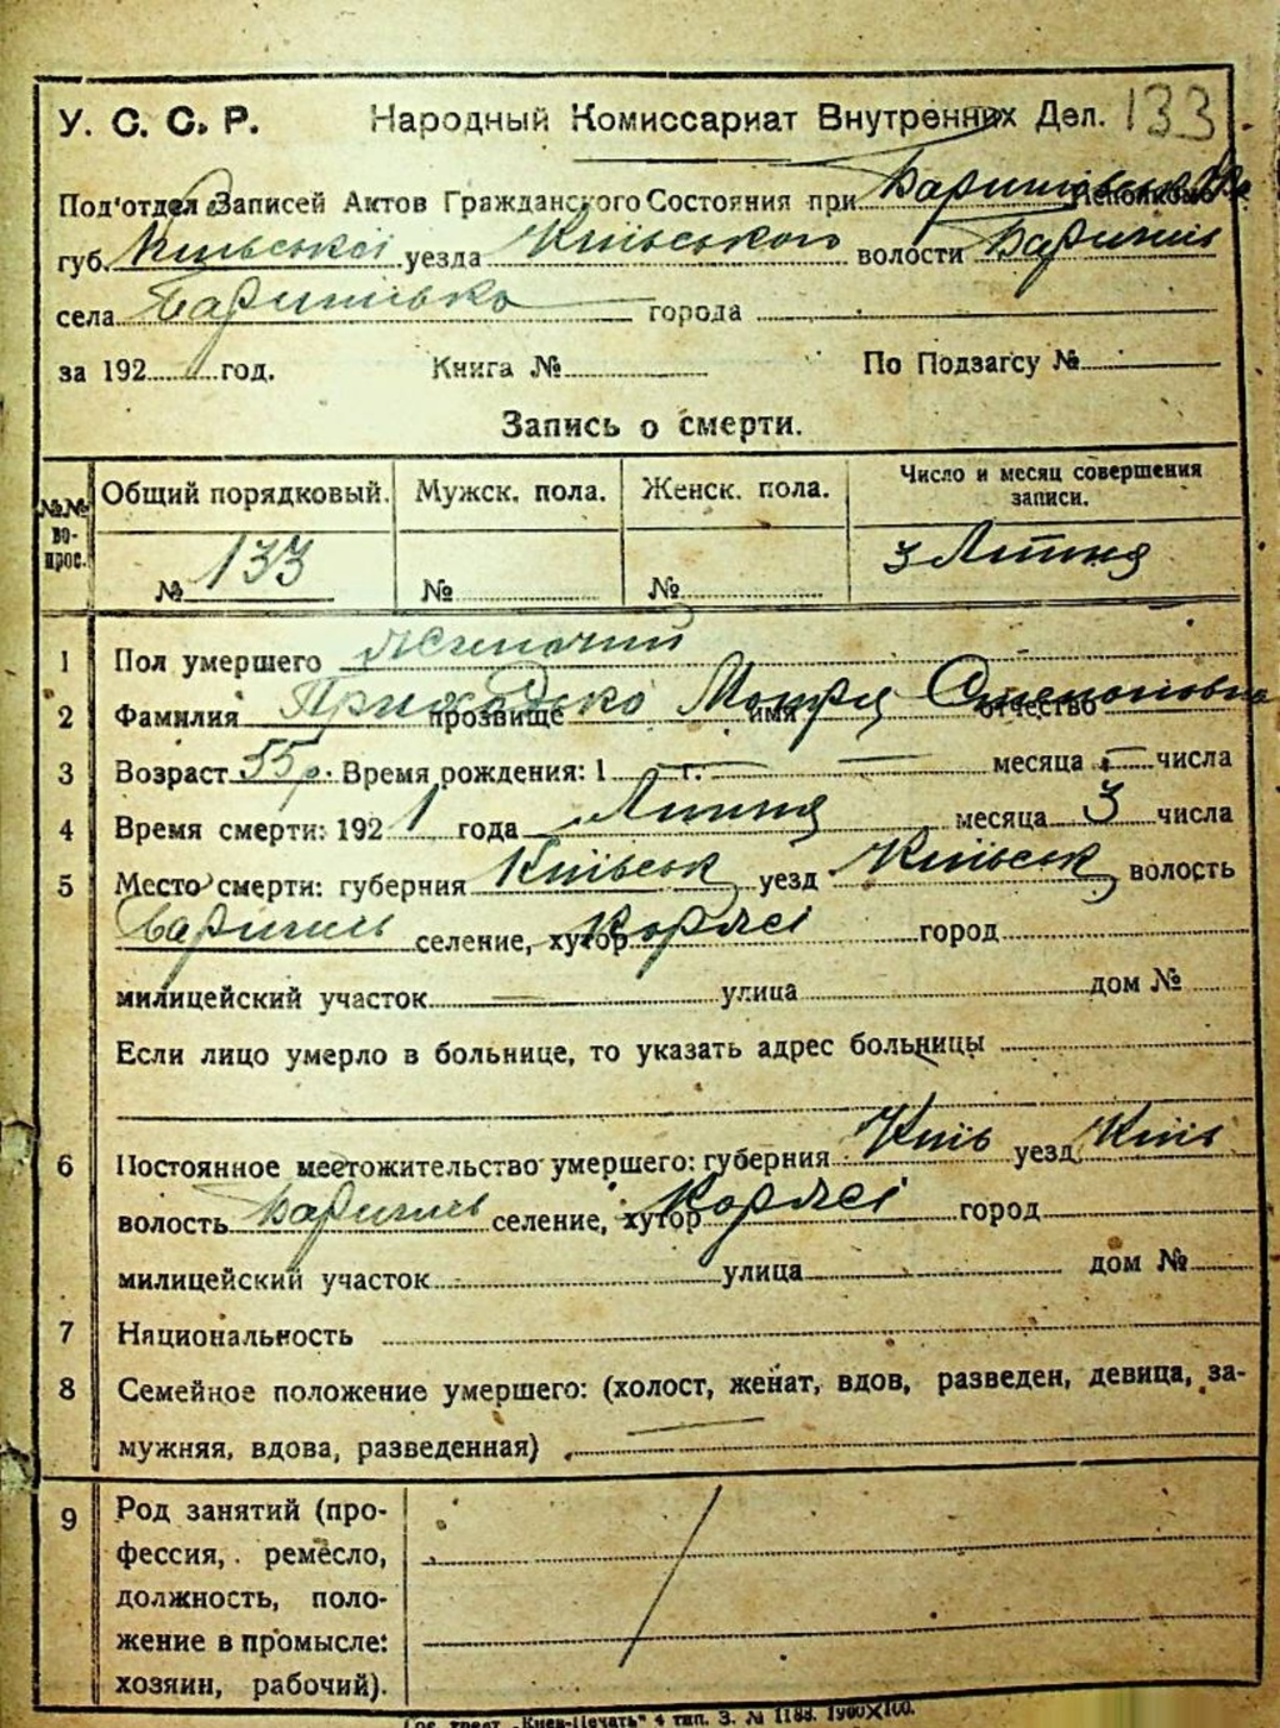 У. С. С. Р. Народный Комиссариат Внутренних Дел. 133
Под'отдел Записей Актов Гражданского Состояния при
губ. Київської уезда Київського волости Баришів
села Баришівка города
за 1921 год. Книга № По Подзагсу №
Запись о смерти.
№№ вопрос. Общий порядковый. Мужск. пола. Женск. пола. Число и месяц совершения
записи.
№ 133 № № 3 Липня
1 Пол умершего Жіночий
2 Фамилия Приходько прозвище имя Мотря отчество Степановна
3 Возраст 55 р. Время рождения: 1 — г. — — месяца — числа
4 Время смерти: 1921 года Липня месяца 3 числа
5 Место смерти: губерния Київськ уезд Київськ волость
Баришів селение, хутор Коржі город
милицейский участок — улица дом №
Если лицо умерло в больнице, то указать адрес больницы
6 Постоянное местожительство умершего: губерния Київ уезд Київ
волость Баришів селение, хутор Коржі город
милицейский участок улица дом №
7 Национальность
8 Семейное положение умершего: (холост, женат, вдов, разведен, девица, за-
мужняя, вдова, разведенная) —
9 Род занятий (про-
фессия, ремесло,
должность, поло-
жение в промысле:
хозяин, рабочий).
Гос. трест „Киев-Печать" 4 тип. З. № 1188. 1900×100.